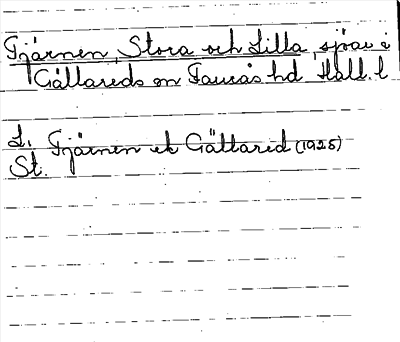 Tjärnen, Stora och Lilla, sjöar i
Gällareds sn Faurås hd Hall. l
L. Tjärnen ek Gällared (1925)
St.